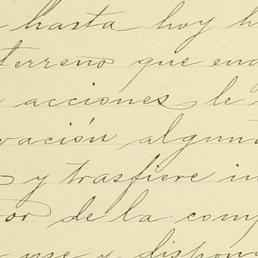 hasta hoy h
terreno que ena
acciones le
vación alguna
y trasfiere in
or de la comp
use y dispon